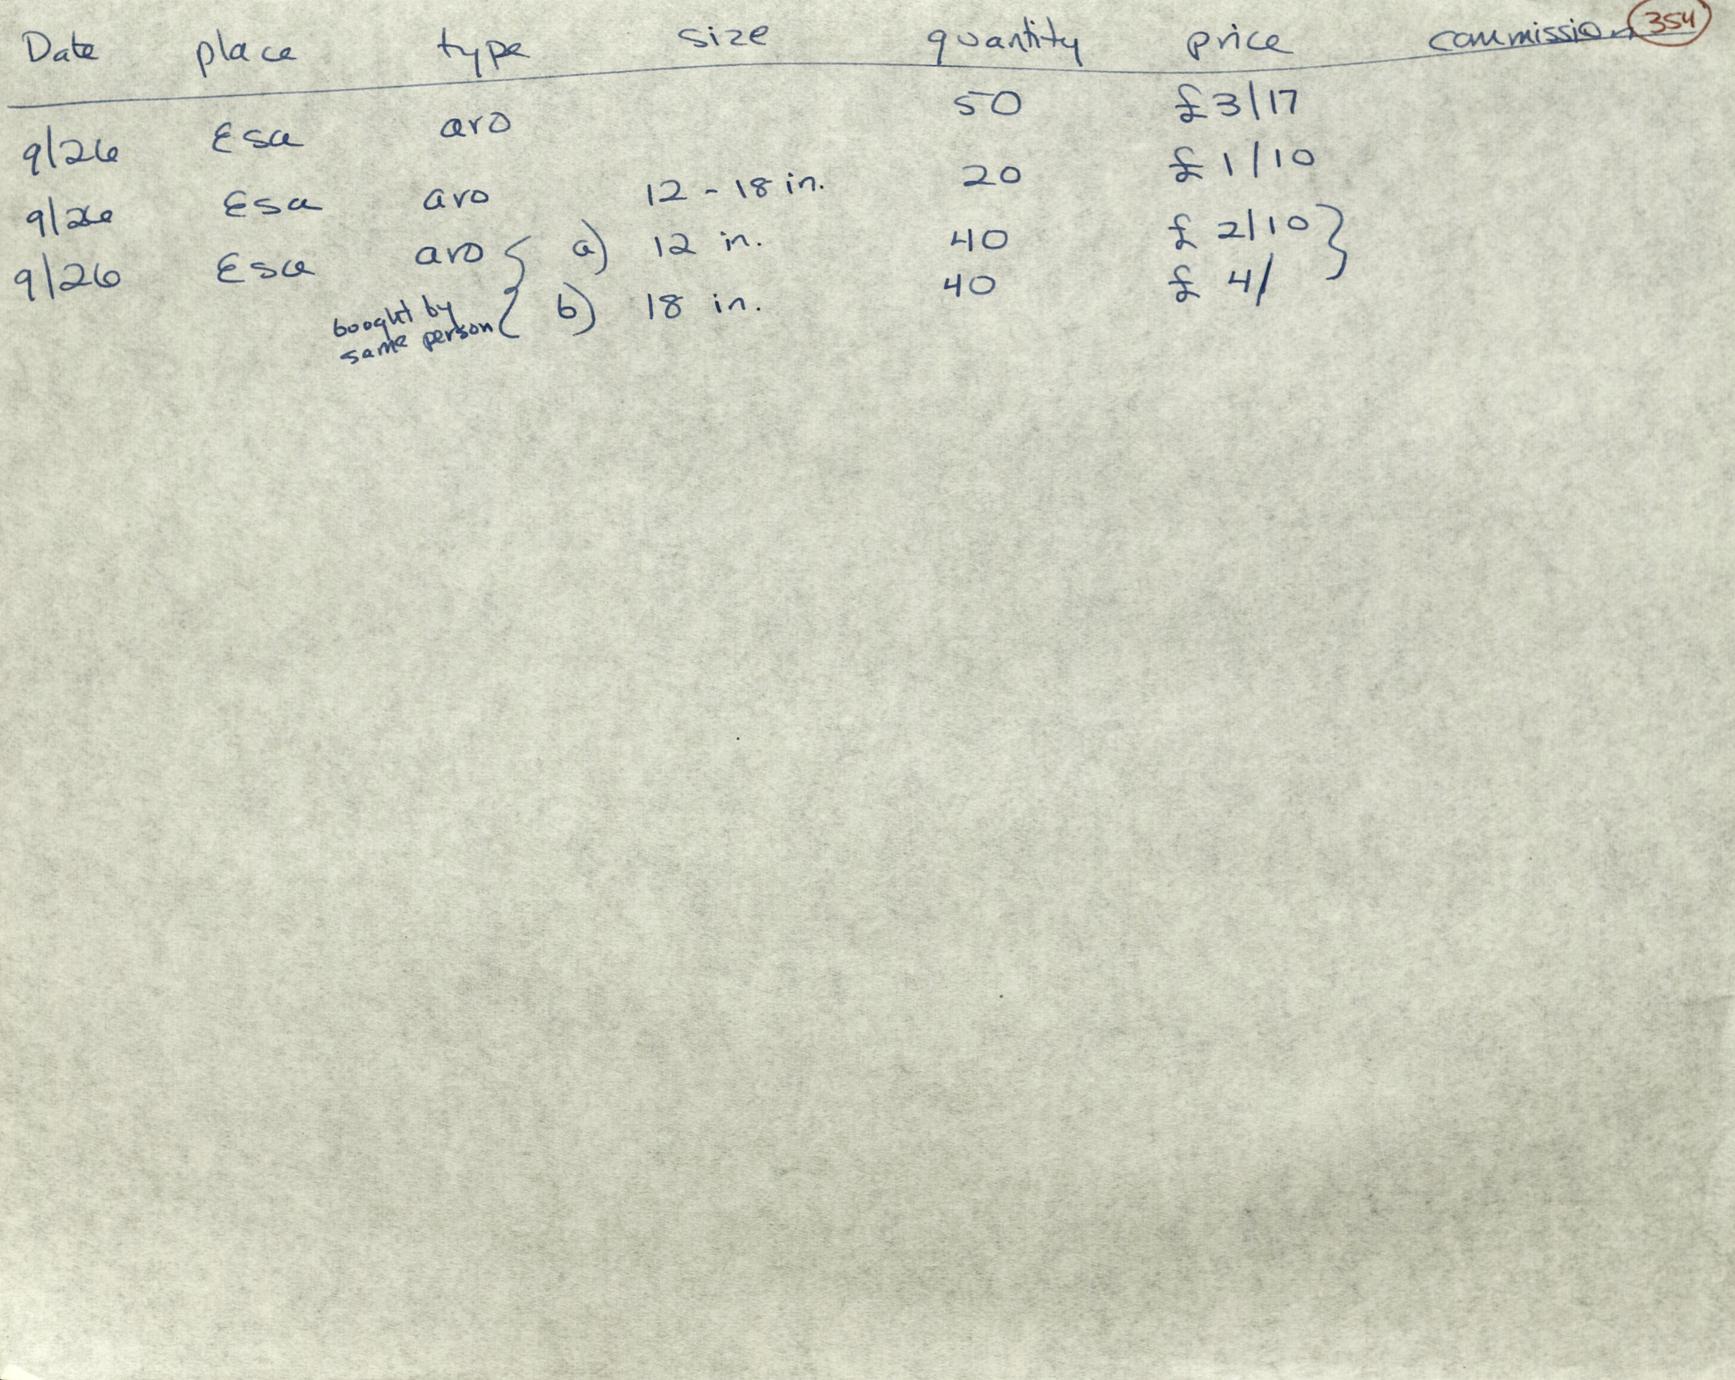 Date place type size quantity price commission 354
9/26 Esa aro 50 £3/17
9/26 Esa aro 12-18 in. 20 £1/10
9/26 Esa aro { a) 12 in. 40 £ 2/10 }
bought by { b) 18 in. 40 £ 4/
same person